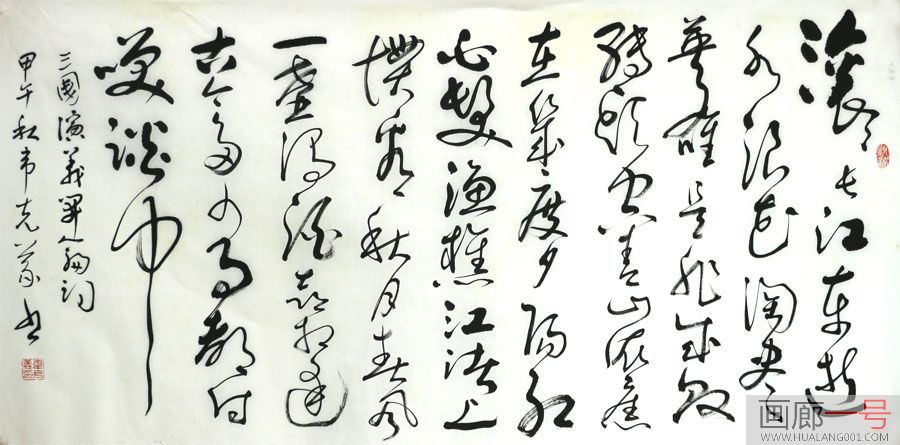 滚滚长江东逝
水浪花淘尽
英雄是非成败
转头空青山依旧
在几度夕阳红
白髮渔樵江渚上
惯看秋月春风
一壶浊酒喜相逢
古今多少事都付
笑谈中
三國演義開篇词
甲午秋韦克义书
画廊一号
WWW.HUALANG001.COM